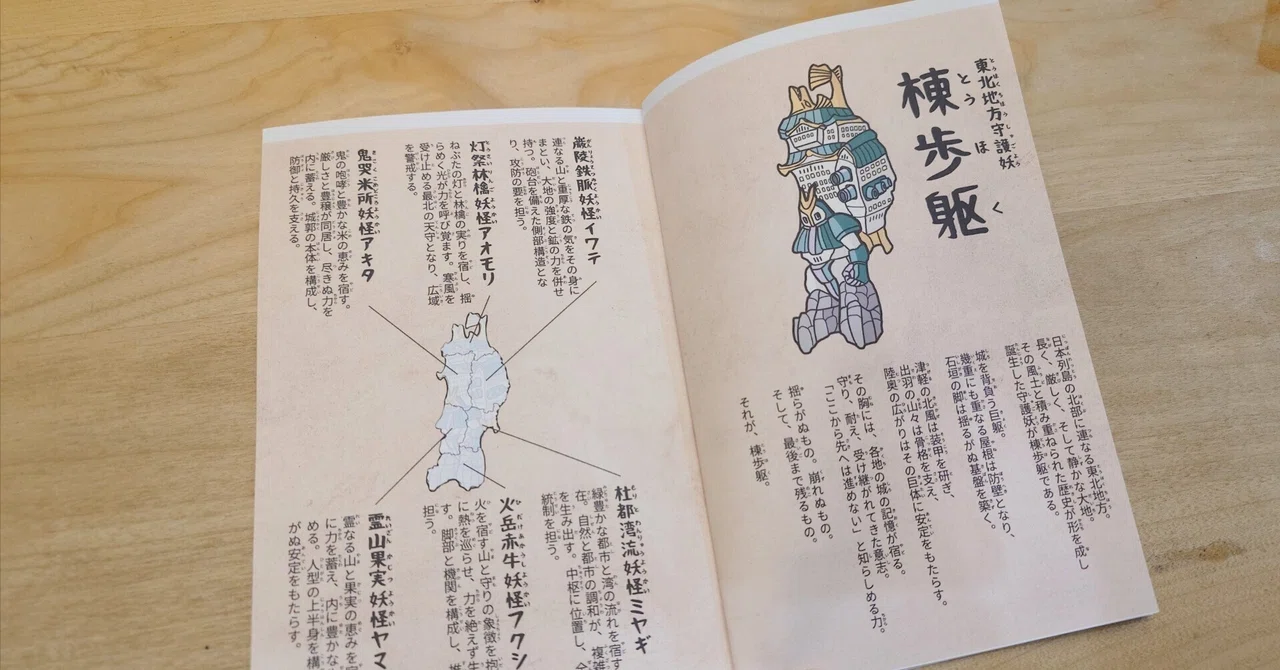 東北地方守護妖
棟歩躯
とうほく
日本列島の北部に連なる東北地方。
長く、厳しく、そして静かな大地。
その風土と積み重ねられた歴史が形を成し
誕生した守護妖が棟歩躯である。
城を背負う巨躯。
幾重にも重なる屋根は防壁となり、
石垣の脚は揺るがぬ基盤を築く。
津軽の北風は装甲を研ぎ、
出羽の山々は骨格を支え、
陸奥の広がりはその巨体に安定をもたらす。
その胸には、各地の城の記憶が宿る。
守り、耐え、受け継がれてきた意志。
「ここから先へは進めない」と知らしめる力。
揺らがぬもの。崩れぬもの。
そして、最後まで残るもの。
それが、棟歩躯。
巌陵鉄脈妖怪イワテ
連なる山と重厚な鉄の気をその身に
まとい、大地の強度と鉱の力を併せ
持つ。砲台を備えた側部構造とな
り、攻防の要を担う。
灯祭林檎妖怪アオモリ
ねぶたの灯と林檎の実りを宿し、揺
らめく光が力を呼び覚ます。寒風を
受け止める最北の天守となり、広域
を警戒する。
鬼哭米所妖怪アキタ
鬼の咆哮と豊かな米の恵みを宿す。
厳しさと豊穣が同居し、尽きぬ力を
内に蓄える。城郭の本体を構成し、
防御と持久を支える。
杜都湾流妖怪ミヤギ
緑豊かな都市と湾の流れを宿す
在。自然と都市の調和が、複雑
を生み出す。中枢に位置し、全
統制を担う。
火岳赤牛妖怪フクシ
火を宿す山と守りの象徴を抱
に熱を巡らせ、力を絶えず生
す。脚部と機関を構成し、推
担う。
霊山果実妖怪ヤマ
霊なる山と果実の恵みを宿
に力を蓄え、内に豊かな
める。人型の上半身を構
がぬ安定をもたらす。